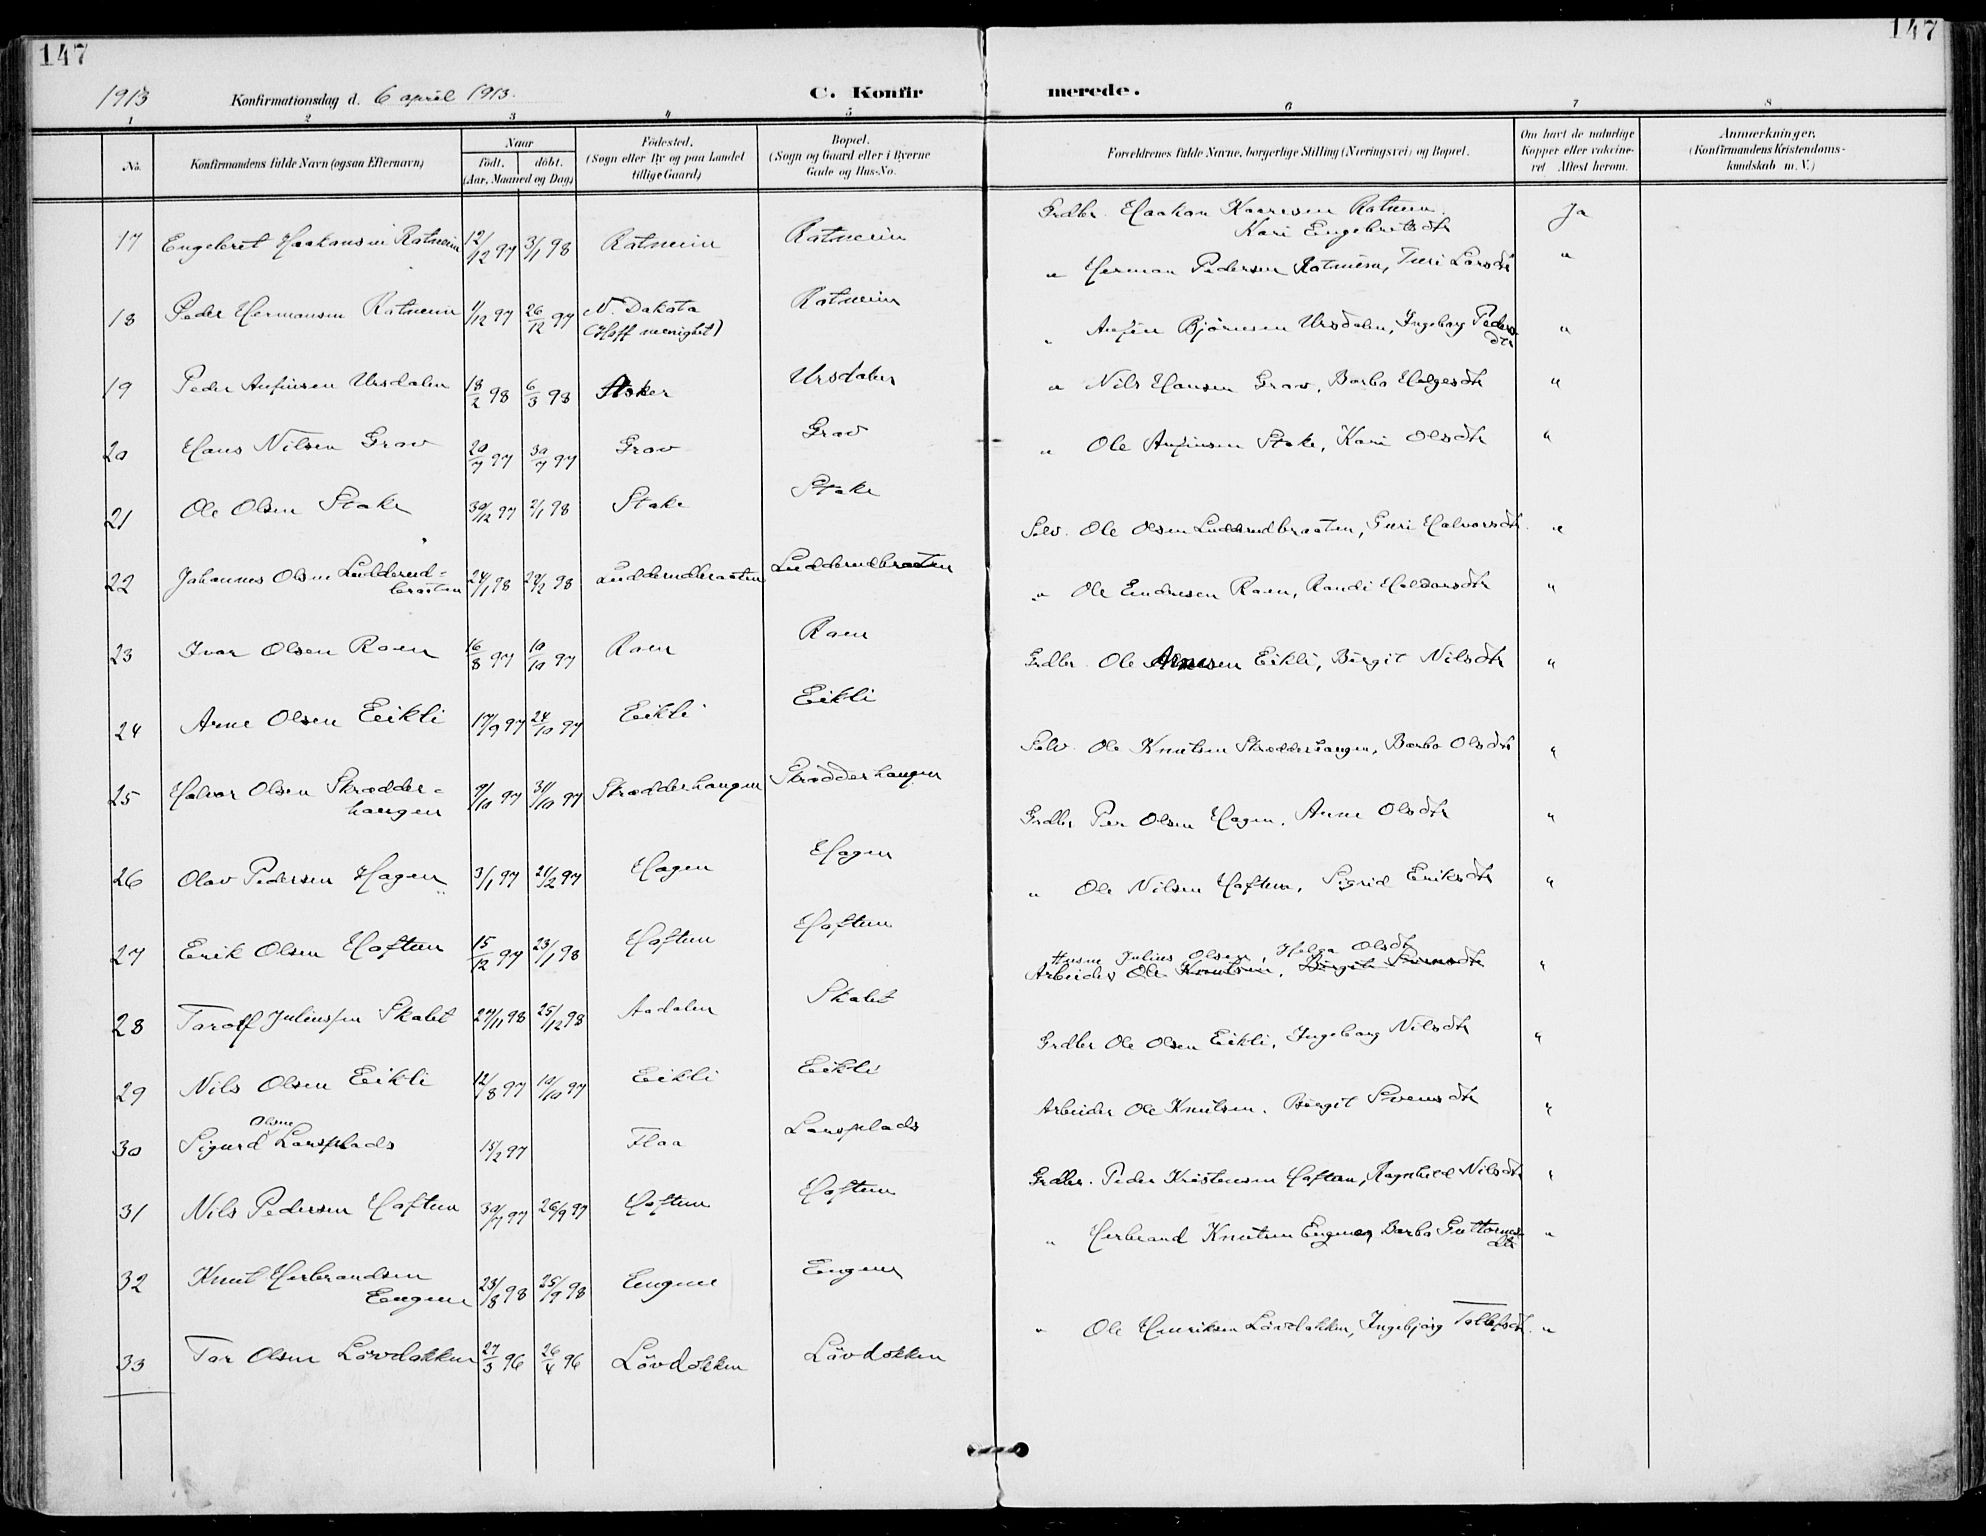 147
147
1913 Konfirmationsdag d. 6 april 1913.
C. Konfir merede.
1 2 3 4 5 6 7 8
No.
Konfirmandens fulde Navn (ogsaa Efternavn)
Naar
födt. döbt.
(Aar, Maaned og Dag)
Födested.
(Sogn eller By og paa Landet
tillige Gaard)
Bopæl.
(Sogn og Gaard eller i Byerne
Gade og Hus-No.
Forældrenes fulde Navne, borgerlige Stilling (Næringsvei) og Bopæl.
Om havt de naturlige
Kopper eller vakcine-
ret Attest herom.
Anmærkninger.
(Konfirmandens Kristendoms-
kundskab m. V.)
17 Engebret Haakansen Ratneim 12/12 97 3/1 98 Ratneim Ratneim Grdbr. Haakan Kaaresen Ratneim. Ja
Kari Engebretsdtr
18 Peder Hermansen Ratneim 1/12 97 26/12 97 N. Dakota Ratneim " Herman Pedersen Ratneim, Turi Larsdtr "
(Hoff menighet)
19 Peder Anfinsen Ursdalen 18/2 98 6/3 98 Asker Ursdalen " Anfin Björnsen Ursdalen, Ingeborg Peders- "
dtr
20 Hans Nilsen Grav 20/7 97 30/7 97 Grav Grav " Nils Hansen Grav, Barbo Helgesdtr "
21 Ole Olsen Stake 30/12 97 2/1 98 Stake Stake " Ole Anfinsen Stake, Kari Olsdtr "
22 Johannes Olsen Ludderud- 24/1 98 24/2 98 Ludderudbraaten Ludderudbraaten Selv. Ole Olsen Ludderudbraaten, Guri Halvorsdtr. "
braaten
23 Ivar Olsen Roen 16/8 97 10/10 97 Roen Roen " Ole Endresen Roen, Randi Halvorsdtr "
24 Arne Olsen Eikli 17/9 97 24/10 97 Eikli Eikli Grdbr. Ole Arnesen Eikli, Birgit Nilsdtr "
25 Halvor Olsen Skrædder- 9/10 97 31/10 97 Skrædderhaugen Skrædderhaugen Selv. Ole Knutsen Skrædderhaugen, Barbo Olsdtr "
haugen
26 Olav Pedersen Hagen 3/1 97 21/2 97 Hagen Hagen Grdbr Per Olsen Hagen. Anne Olsdtr "
27 Erik Olsen Haftun 15/12 97 23/1 98 Haftun Haftun " Ole Nilsen Haftun, Sigrid Eriksdtr "
28 Tarolf Juliussen Skalet 27/11 98 25/12 98 Aadalen Skalet Husm Julius Olsen, Helga Olsdtr
Arbeider Ole Knutsen, Birgit Svensdtr "
29 Nils Olsen Eikli 12/8 97 10/10 97 Eikli Eikli Grdbr Ole Olsen Eikli, Ingeborg Nilsdtr "
Olsen
30 Sigurd Larsplads 15/2 97 Flaa Larsplads Arbeider Ole Knutsen. Birgit Svensdtr "
31 Nils Pedersen Haftun 30/7 97 26/9 97 Haftun Haftun Grdbr. Peder Kristensen Haftun, Ragnhild Nilsdtr "
32 Knut Herbrandsen 23/8 98 25/9 98 Eugene Eugene " Herbrand Knutsen Eugene, Barbo Guttorms- "
Eugene dtr
33 Tor Olsen Lövdokken 27/3 96 26/4 96 Lövdokken Lövdokken " Ole Henriksen Lövdokken, Ingebjörg Tollefsdtr. "